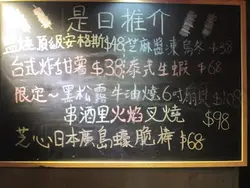 是日推介
盐燒頂級安格斯$48 芝麻醬凍烏冬$38
台式炸甘薯$38 泰式生蝦$68
限定~黑松露牛油燒6吋扇貝
串酒里火焰叉燒 $98
芝心日本廣島蠔脆棒 $68